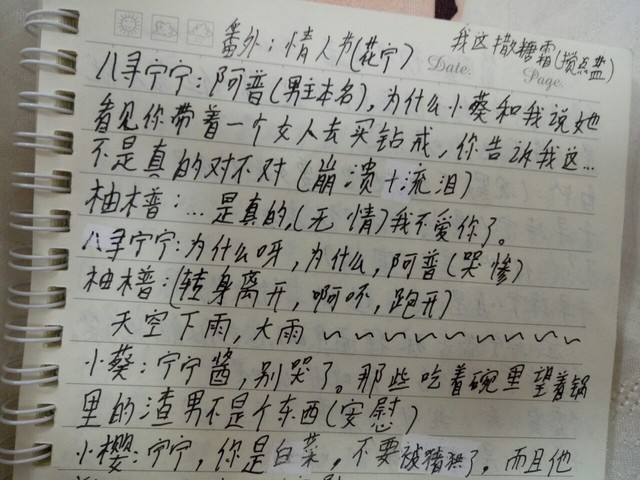 番外：情人节(花宁)
我这撒糖霜(搅点盐)
Date.
Page.
八寻宁宁：阿普(男主本名)，为什么小葵和我说她
看见你带着一个女人去买钻戒，你告诉我这...
不是真的对不对(崩溃+流泪)
柚木普：...是真的，(无情)我不爱你了。
八寻宁宁：为什么呀，为什么，阿普(哭惨)
柚木普：(转身离开，啊呸，跑开)
天空下雨，大雨~~~~~~~~~~
小葵：宁宁酱，别哭了。那些吃着碗里望着锅
里的渣男不是个东西(安慰)
小樱：宁宁，你是白菜，不要被猪拱了。而且他